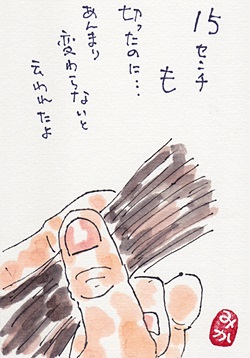 15センチ
も
切ったのに…
あんまり
変わらないと
云われたよ
みか